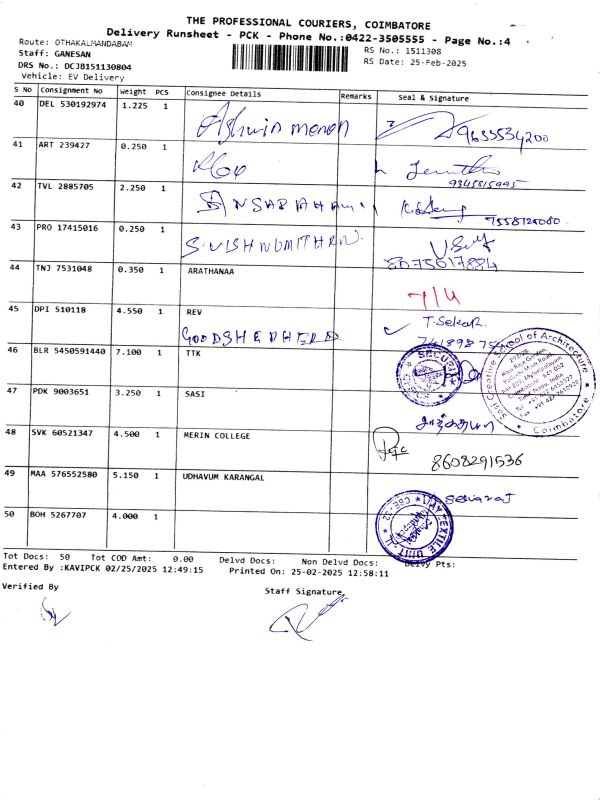 THE PROFESSIONAL COURIERS, COIMBATORE
Delivery Runsheet - PCK - Phone No.:0422-3505555 - Page No.:4
Route: OTHAKALMANDABAM
RS No.: 1511308
Staff: GANESAN
RS Date: 25-Feb-2025
DRS No.: DCJ8151130804
Vehicle: EV Delivery
S No Consignment No Weight PCS Consignee Details Remarks Seal & Signature
40 DEL 530192974 1.225 1 Ashwin menon 9633534200
41 ART 239427 0.250 1
9345815995
42 TVL 2885705 2.250 1
43 PRO 17415016 0.250 1 S.VISHNUMITHRAN
8075017884
44 TNJ 7531048 0.350 1 ARATHANAA
45 DPI 510118 4.550 1 REV T.Sekar.
46 BLR 5450591440 7.100 1 TTK
SECURITY
Creative School of Architecture
Coimbatore
47 PDK 9003651 3.250 1 SASI
48 SVK 60521347 4.500 1 MERIN COLLEGE
8608291536
49 MAA 576552580 5.150 1 UDHAVUM KARANGAL
Selvaraj
50 BOH 5267707 4.000 1
Tot Docs: 50 Tot COD Amt: 0.00 Delvd Docs: Non Delvd Docs: Delvy Pts:
Entered By :KAVIPCK 02/25/2025 12:49:15 Printed On: 25-02-2025 12:58:11
Verified By Staff Signature